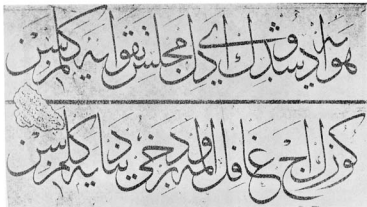 هوايه دوشدك اي دل مجلس تقوايه كلمزسن
كوزك اج غافل اولمه بر دخي دنيايه كلمزسن